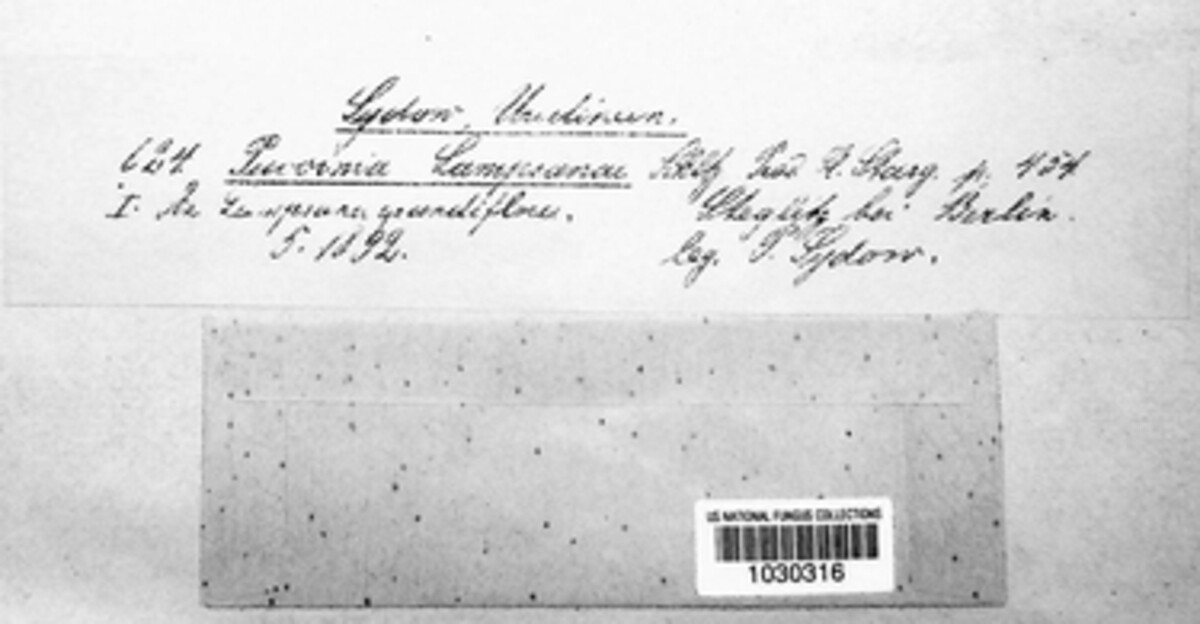 Sydow, Uredineen.
624. Puccinia Lampsanae Schltz Prod. Fl. Starg. p. 454
I. Az Lampsana grandiflora. Steglitz bei Berlin.
5. 1892. leg. P. Sydow.
US NATIONAL FUNGUS COLLECTIONS
1030316